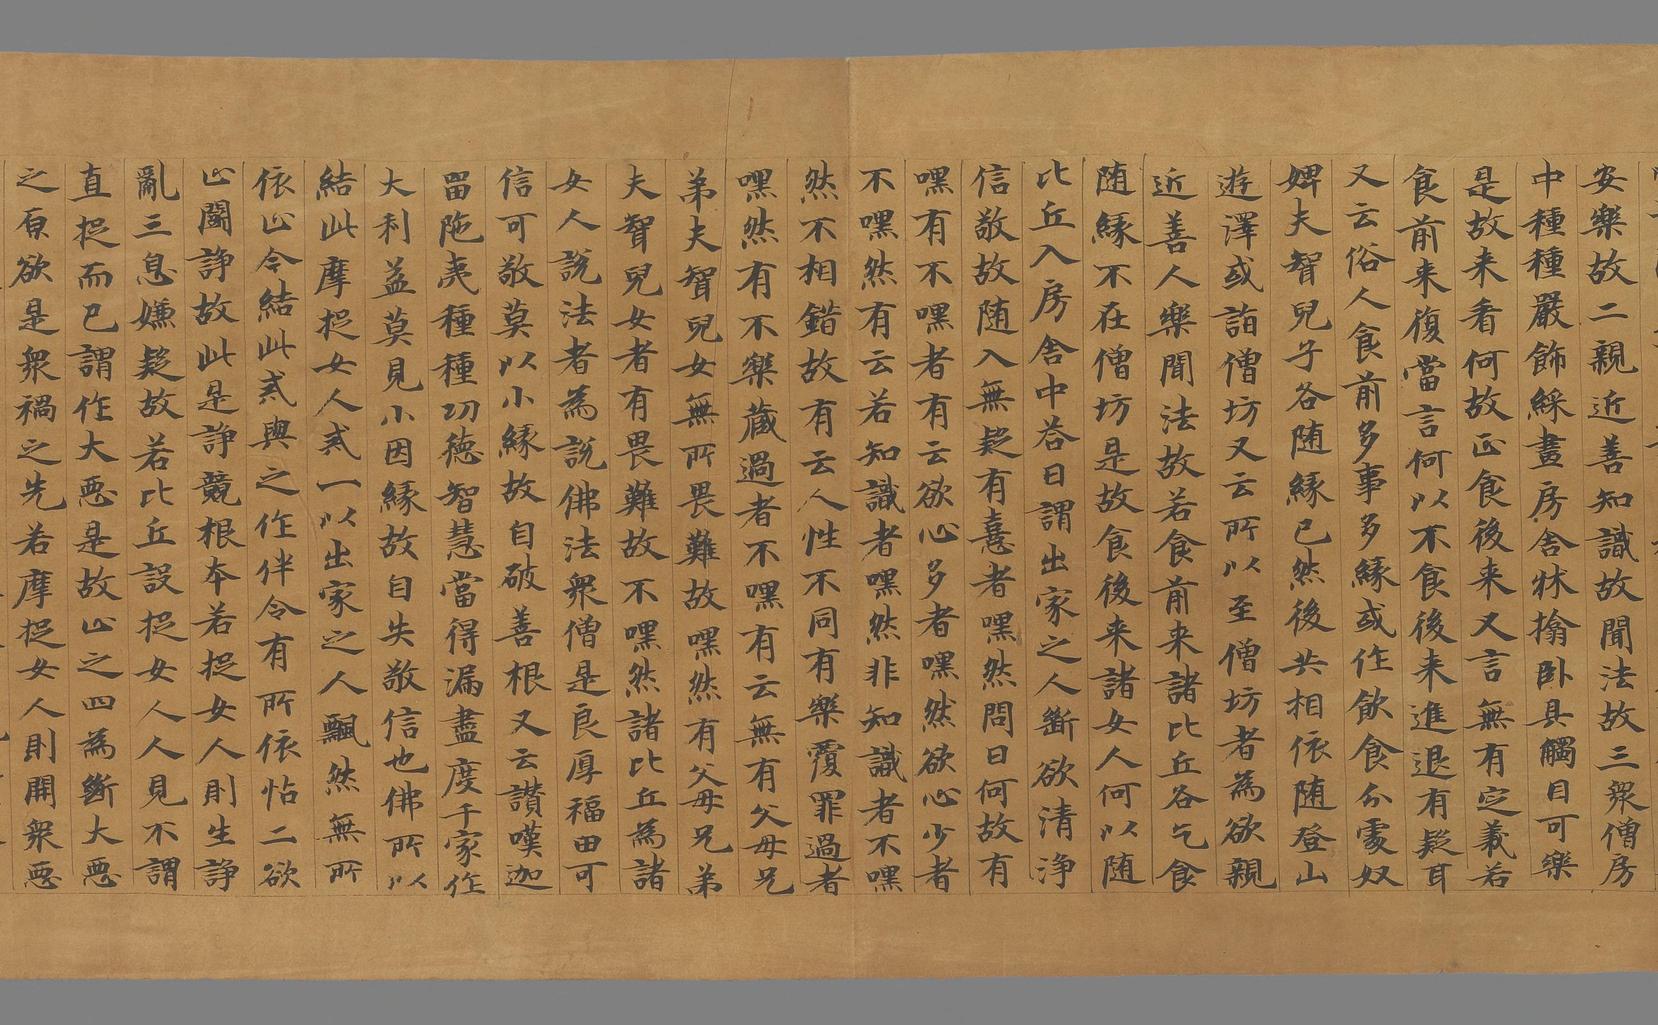 安樂故二親近善知識故聞法故三衆僧房
中種種嚴飾綵畫房舍牀搚卧具觸目可樂
是故来看何故正食後来又言無有定義若
食前来復當言何以不食後来進退有疑耳
又云俗人食前多事多緣或作飲食分處奴
婢夫智兒子各随緣已然後共相依随登山
遊澤或詣僧坊又云所以至僧坊者為欲親
近善人樂聞法故若食前来諸比丘各乞食
随緣不在僧坊是故食後来諸女人何以随
比丘入房舍中荅曰謂出家之人斷欲清浄
信敬故随入無疑有憙者嘿然問曰何故有
嘿有不嘿者有云欲心多者嘿然欲心少者
不嘿然有云若知識者嘿然非知識者不嘿
然不相錯故有云人性不同有樂覆罪過者
嘿然有不樂藏過者不嘿有云無有父母兄
弟夫智兒女無所畏難故嘿然有父母兄弟
夫智兒女者有畏難故不嘿然諸比丘為諸
女人說法者為說佛法衆僧是良厚福田可
信可敬莫以小緣故自破善根又云讃嘆迦
留陁夷種種功德智慧當得漏盡度千家作
大利益莫見小因緣故自失敬信也佛所以
結此摩捉女人戒一以出家之人飄然無所
依止令結此戒與之作伴令有所依怙二欲
止鬪諍故此是諍競根本若捉女人則生諍
亂三息嫌疑故若比丘設捉女人人見不謂
直捉而已謂作大惡是故止之四為斷大惡
之原欲是衆禍之先若摩捉女人則開衆惡